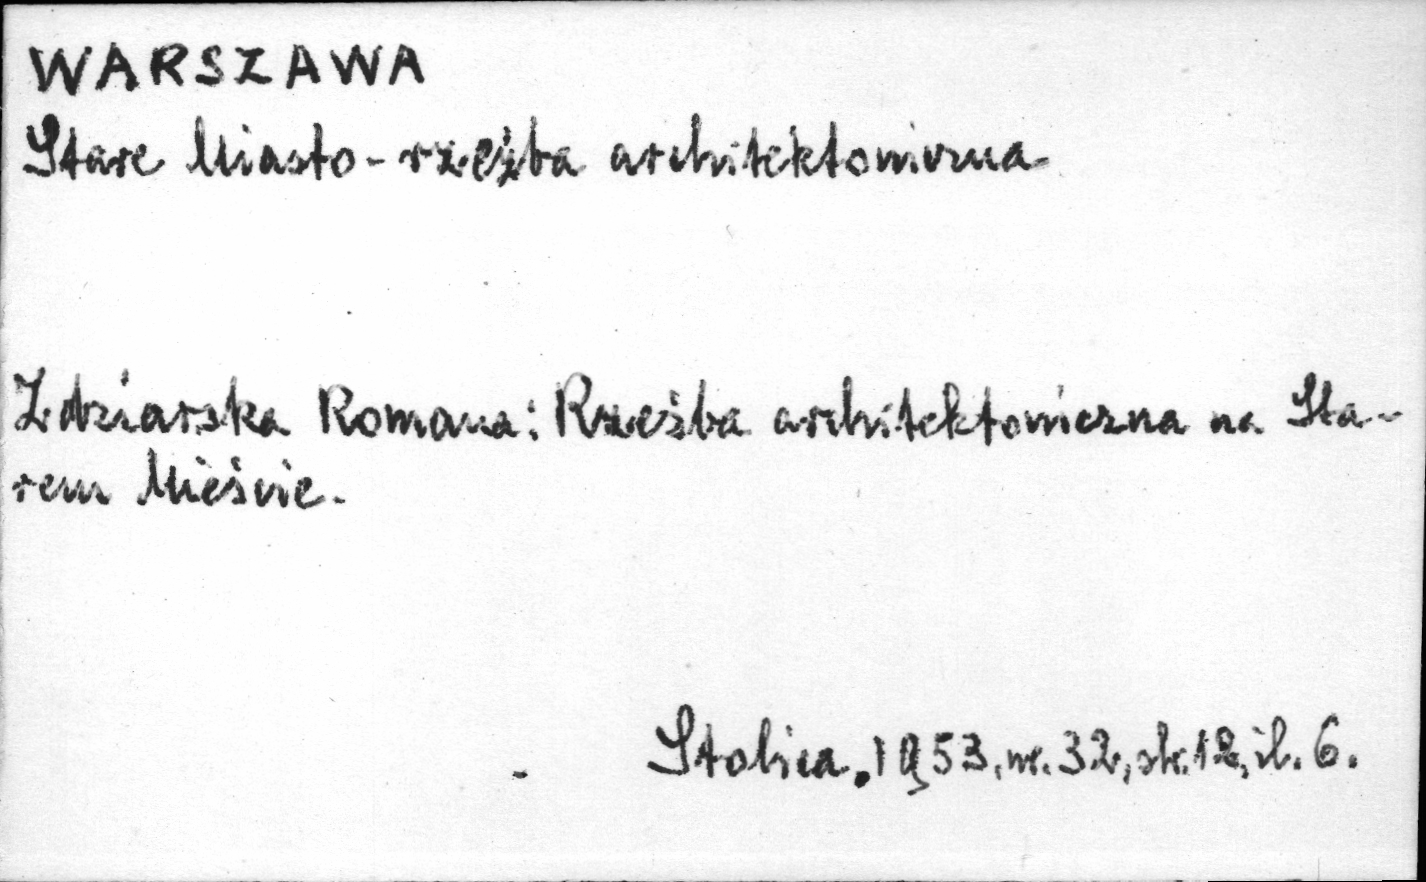 WARSZAWA
Stare Miasto - rzeźba architektoniczna
Zdziarska Romana: Rzeźba architektoniczna na Sta-
rem Mieście.
Stolica. 1953, nr. 32, str. 12, il. 6.